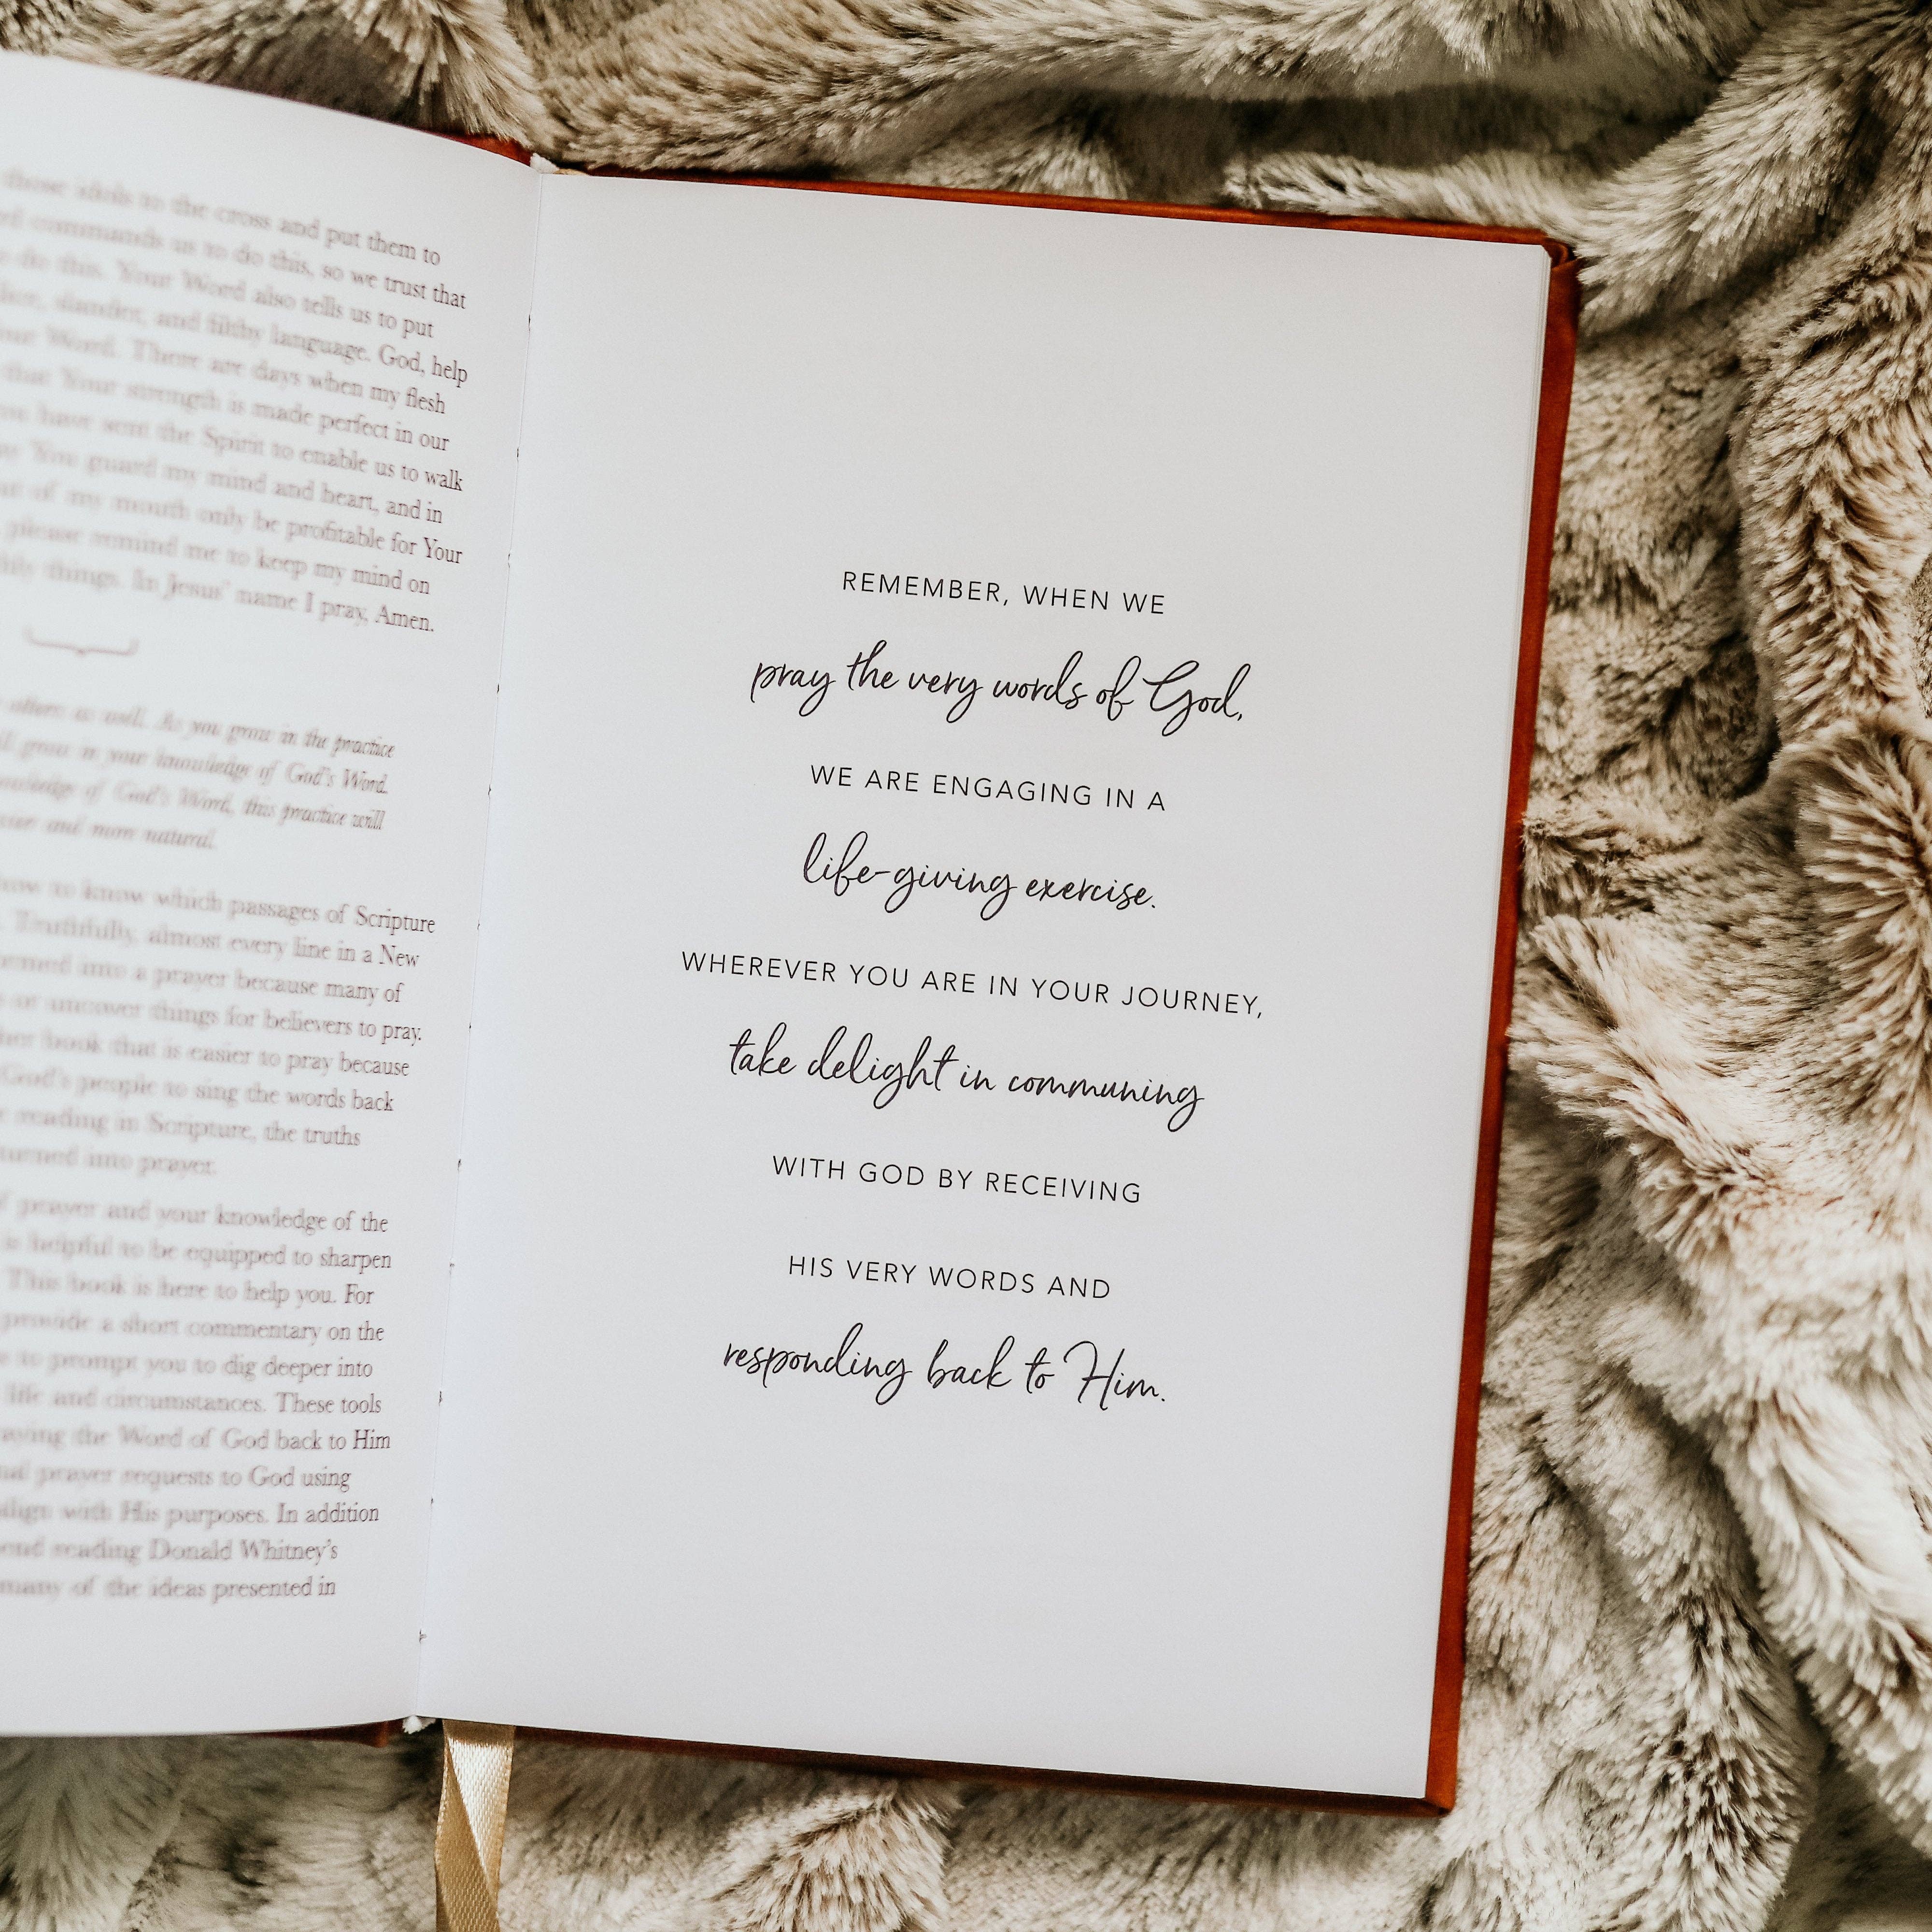 those idols to the cross and put them to
commands us to do this, so we trust that
do this. Your Word also tells us to put
slander, and filthy language. God, help
Word. There are days when my flesh
that Your strength is made perfect in our
have sent the Spirit to enable us to walk
You guard my mind and heart, and in
of my mouth only be profitable for Your
please remind me to keep my mind on
things. In Jesus' name I pray, Amen.
others as well. As you grow in the practice
grow in your knowledge of God's Word.
of God's Word, this practice will
and more natural.
how to know which passages of Scripture
Truthfully, almost every line in a New
into a prayer because many of
or uncover things for believers to pray.
book that is easier to pray because
God's people to sing the words back
reading in Scripture, the truths
turned into prayer.
prayer and your knowledge of the
is helpful to be equipped to sharpen
This book is here to help you. For
provide a short commentary on the
to prompt you to dig deeper into
life and circumstances. These tools
the Word of God back to Him
prayer requests to God using
align with His purposes. In addition
reading Donald Whitney's
many of the ideas presented in
REMEMBER, WHEN WE
pray the very words of God,
WE ARE ENGAGING IN A
life-giving exercise.
WHEREVER YOU ARE IN YOUR JOURNEY,
take delight in communing
WITH GOD BY RECEIVING
HIS VERY WORDS AND
responding back to Him.